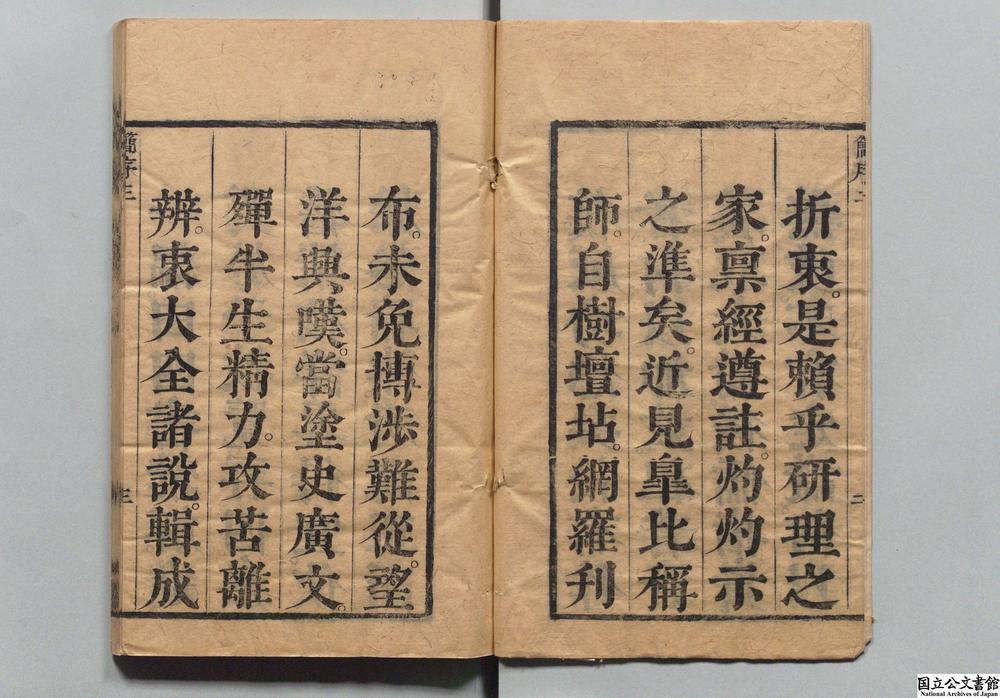 折衷。是賴乎研理之
家。禀經遵註。灼灼示
之準矣。近見皐比稱
師。自樹壇坫。網羅刊
布。未免博涉難從。望
洋興嘆。當塗史廣文。
殫半生精力。攻苦離
辨。衷大全諸說。輯成
簡序二
二
簡序三
三
国立公文書館
National Archives of Japan